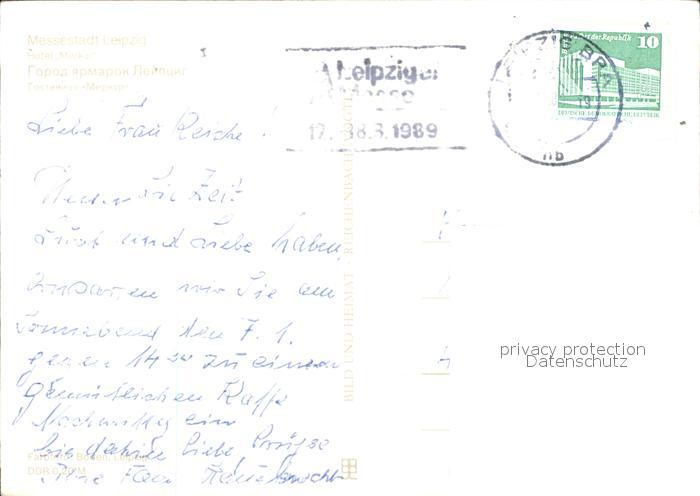 Messestadt Leipzig
Hotel „Merkur“
Город ярмарок Лейпциг
Гостиница «Меркур»
Leipziger
Messe
1989
LEIPZIG BPA
Palast der Republik 10
DEUTSCHE DEMOKRATISCHE REPUBLIK
Liebe Frau !
Sie Zeit
Lust und Liebe haben,
wir Sie am
Sonnabend den 7. 1.
gegen 14 zu einem
gemütlichen Kaffe
ein
bis dahin liebe Grüße
Ihre Frau
BILD UND HEIMAT REICHENBACH
DDR 0,20 M
privacy protection
Datenschutz